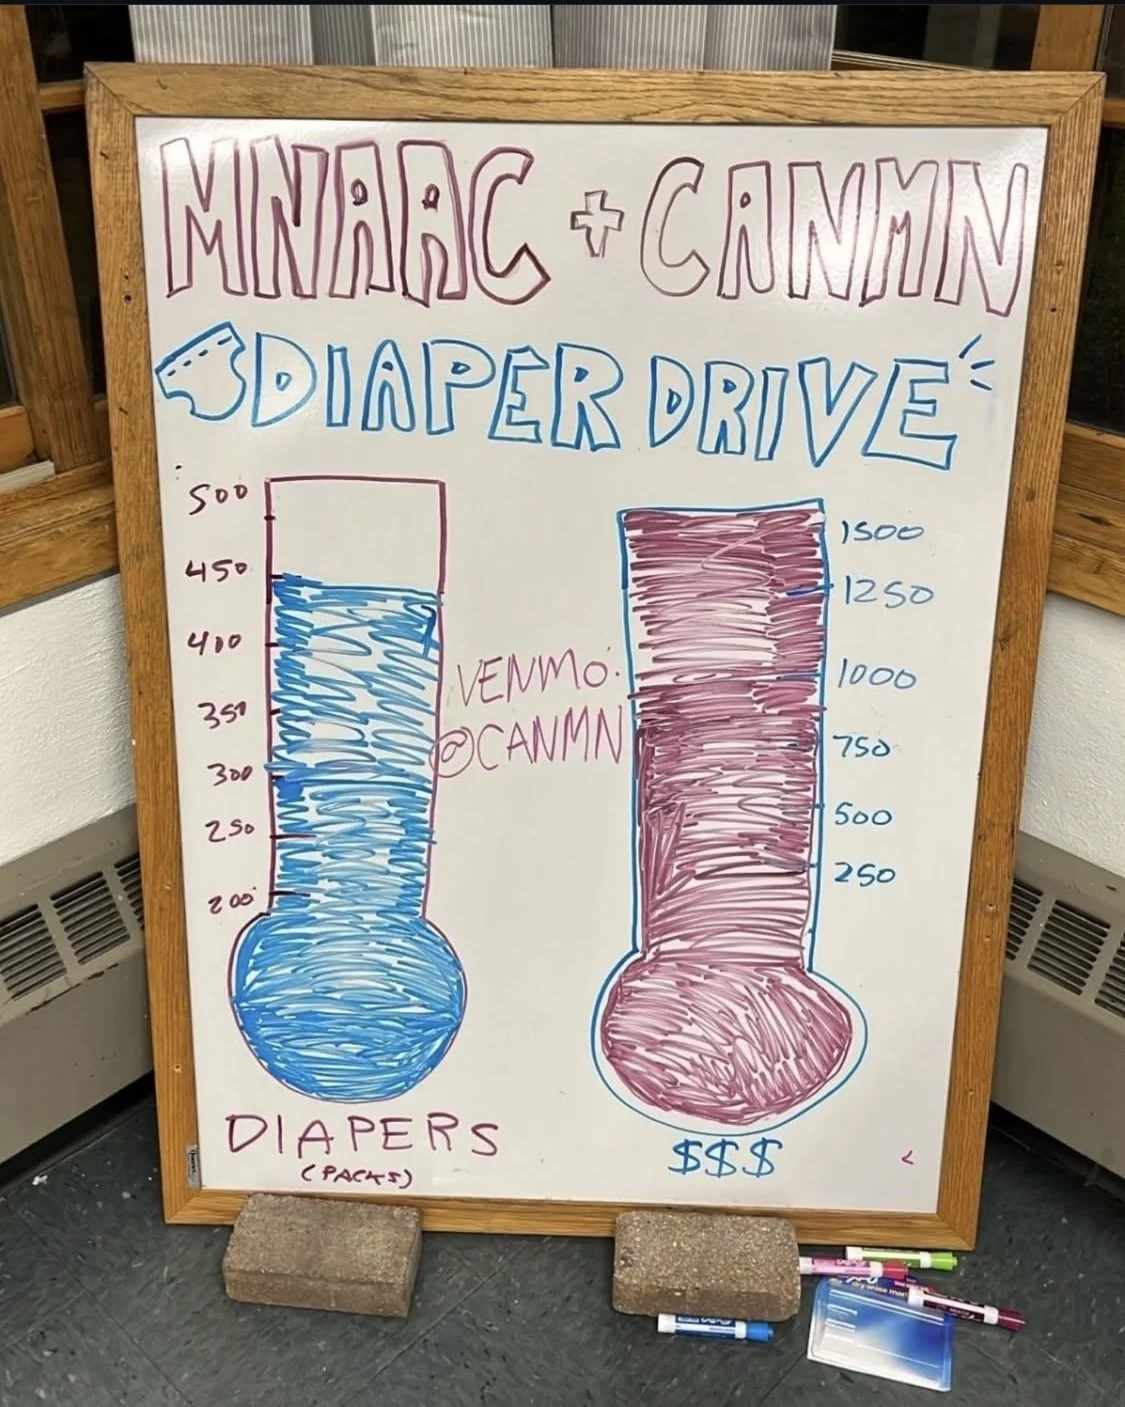 MNAAC + CANMN
DIAPER DRIVE
500
450
400
350
300
250
200
VENMO:
@CANMN
1500
1250
1000
750
500
250
DIAPERS
(PACKS)
$$$